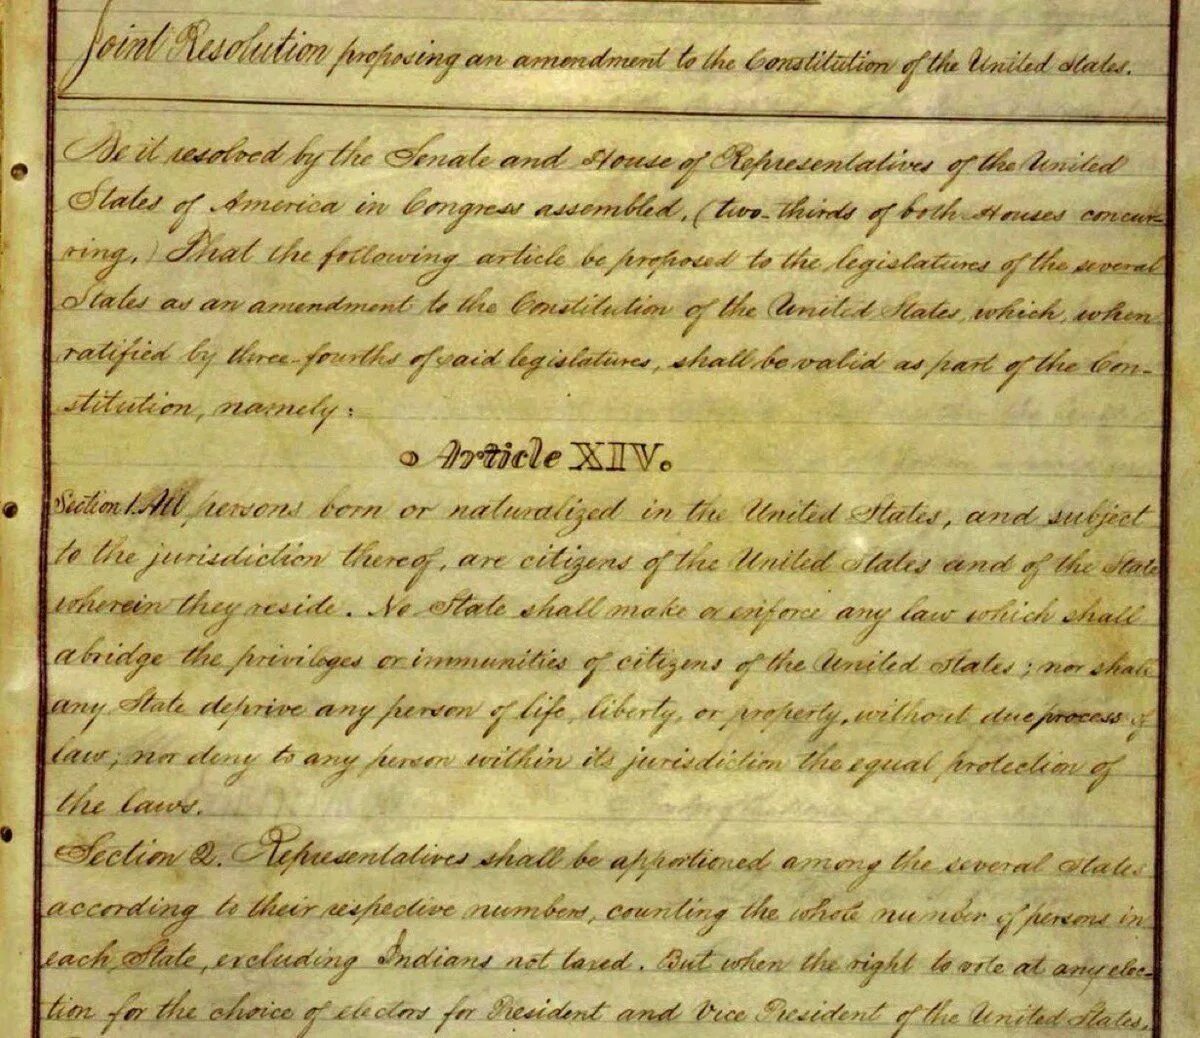 Joint Resolution proposing an amendment to the Constitution of the United States.
Be it resolved by the Senate and House of Representatives of the United
States of America in Congress assembled, (two-thirds of both Houses concur-
ring,) That the following article be proposed to the legislatures of the several
States as an amendment to the Constitution of the United States, which, when
ratified by three-fourths of said legislatures, shall be valid as part of the Con-
stitution, namely:
Article XIV.
Section 1. All persons born or naturalized in the United States, and subject
to the jurisdiction thereof, are citizens of the United States and of the State
wherein they reside. No State shall make or enforce any law which shall
abridge the privileges or immunities of citizens of the United States; nor shall
any State deprive any person of life, liberty, or property, without due process of
law; nor deny to any person within its jurisdiction the equal protection of
the laws.
Section 2. Representatives shall be apportioned among the several States
according to their respective numbers, counting the whole number of persons in
each State, excluding Indians not taxed. But when the right to vote at any elec-
tion for the choice of electors for President and Vice President of the United States,